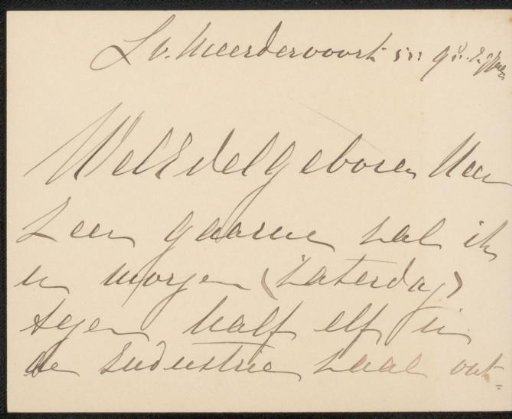 L v. Meerdervoort
WelEdelgeboren Heer
Zeer gaarne zal ik
u morgen (Zaterdag)
tegen half elf in
de Industrie zaal ont-